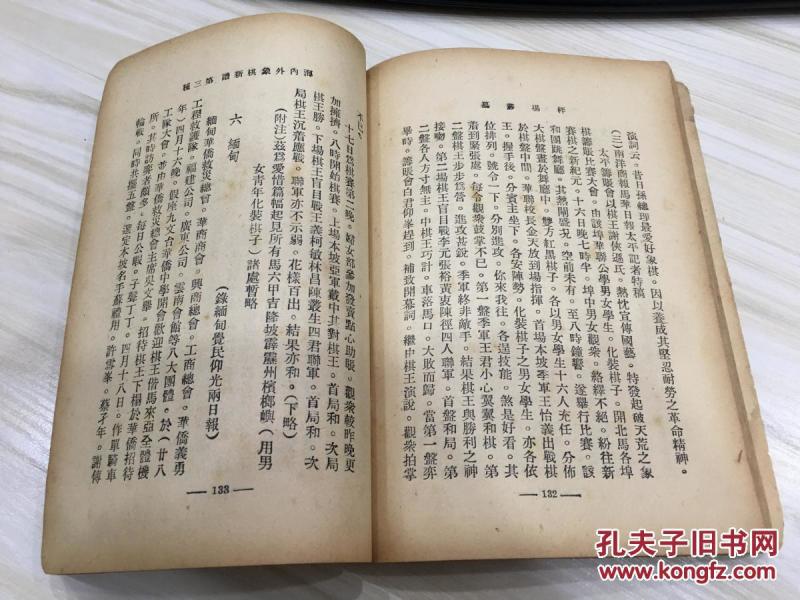 枰棋叢墓
演詞云。昔日孫總理最愛好象棋。因以養成其堅忍耐勞之革命精神。
(三)南洋商報馬華日報太平記者特稿
太平籌賑會以棋王謝俠遜氏。熱忱宣傳國藝。特發起破天荒之象
棋籌賑比賽大會。由該埠華聯公學男女學生。化裝棋子。開北馬各埠
賽棋之新紀元。十六日晚七時半。埠中男女觀衆。絡繹不絕。紛往新
和園跳舞廳。其熱鬧盛况。空前未有。至八時鐘響。遂舉行比賽。該
大棋盤畫於舞廳中。雙方紅黑棋子。各以男女學生十六人充任。分佈
於棋盤中間。華聯校長金天放到場指揮。首場本坡季軍王怡義出戰棋
王。握手後。分賓主坐下。各呈陣勢。化裝棋子之男女學生。亦各依
位排列。號令一下。分別進攻。你來我往。各逞技能。煞是好看。其
萧到緊張處。每令觀衆鼓掌不已。第一盤季軍王君小心翼翼和棋。第
二盤棋王步步爲營。進攻甚銳。季軍終非敵手。結果棋王與勝利之神
接吻。第二場棋王盲目戰李元張裕黃東陳徑四人聯軍。首盤和局。第
二盤各人方寸無主。中棋王巧計。車落馬口。大敗而歸。當第一盤弈
畢時。籌賑會白君仰峯趕到。補致開幕詞。繼中棋王演說。觀衆拍掌
— 132 —
海內外象棋新譜第三種
十七日爲棋賽第二晚。婦女部參加發賣點心助賑。觀衆較昨晚更
加擁擠。八時開始棋賽。上場本坡亞軍戴中其對棋王。首局和。次局
棋王勝。下場棋王盲目戰王義柯敏林昌陳叢生四君聯軍。首局和。次
局棋王沉着應戰。聯軍亦不示弱。花樣百出。結果亦和。(下略)
(附注)茲爲愛惜篇幅起見所有馬六甲吉隆坡霹靂州檳榔嶼(用男
女青年化裝棋子)諸處暫略
六 緬甸
(錄緬甸覺民仰光兩日報)
緬甸華僑救災總會。華商商會。興商總會。工商總會。華僑義勇
工程救護隊。福建公司。廣東公司。雲南會館等八大團體。於(廿八
年)四月十六晚。假座九文台華僑中學開會歡迎棋王偕馬來亞全體機
工隊大會。由華僑救災總會主席吳文舉。招待棋王下榻於華僑招待
所。其時訪藝者頗多。每日公暇。子聲丁丁。四月十八日。作單騎車
輪戰。同時共擺五盤。選定本坡名手蘇禮用。許雪峯。蔡矛年。謝傳
— 133 —
孔夫子旧书网
www.kongfz.com